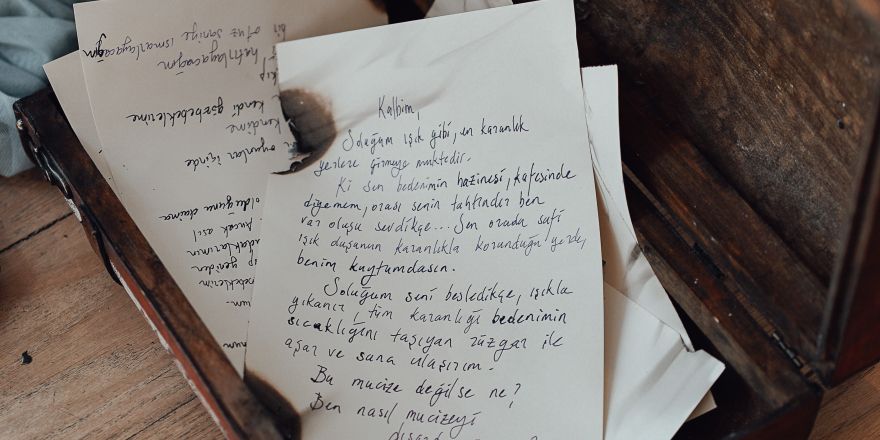 Kalbim,
Soluğum ışık gibi, en karanlık
yerlere girmeye muktedir.
Ki sen bedenimin hazinesi, kafesinde
diyemem, orası senin tahtındır ben
var oluşu sevdikçe... Sen orada safi
ışık dışarının karanlıkla korunduğu yerde,
benim kuytumdasın.
Soluğum seni besledikçe, ışıkla
yıkanır, tüm karanlığı bedenimin
sıcaklığını taşıyan rüzgar ile
aşar ve sana ulaşırım.
Bu mucize değilse ne?
Ben nasıl mucizeyi
otuz saniye ısmarlayacağım
hatırlayacağım
kendi gözbebeklerime
kendime
oyunları içinde
olduğunu daima
Ancak asıl
yeniden